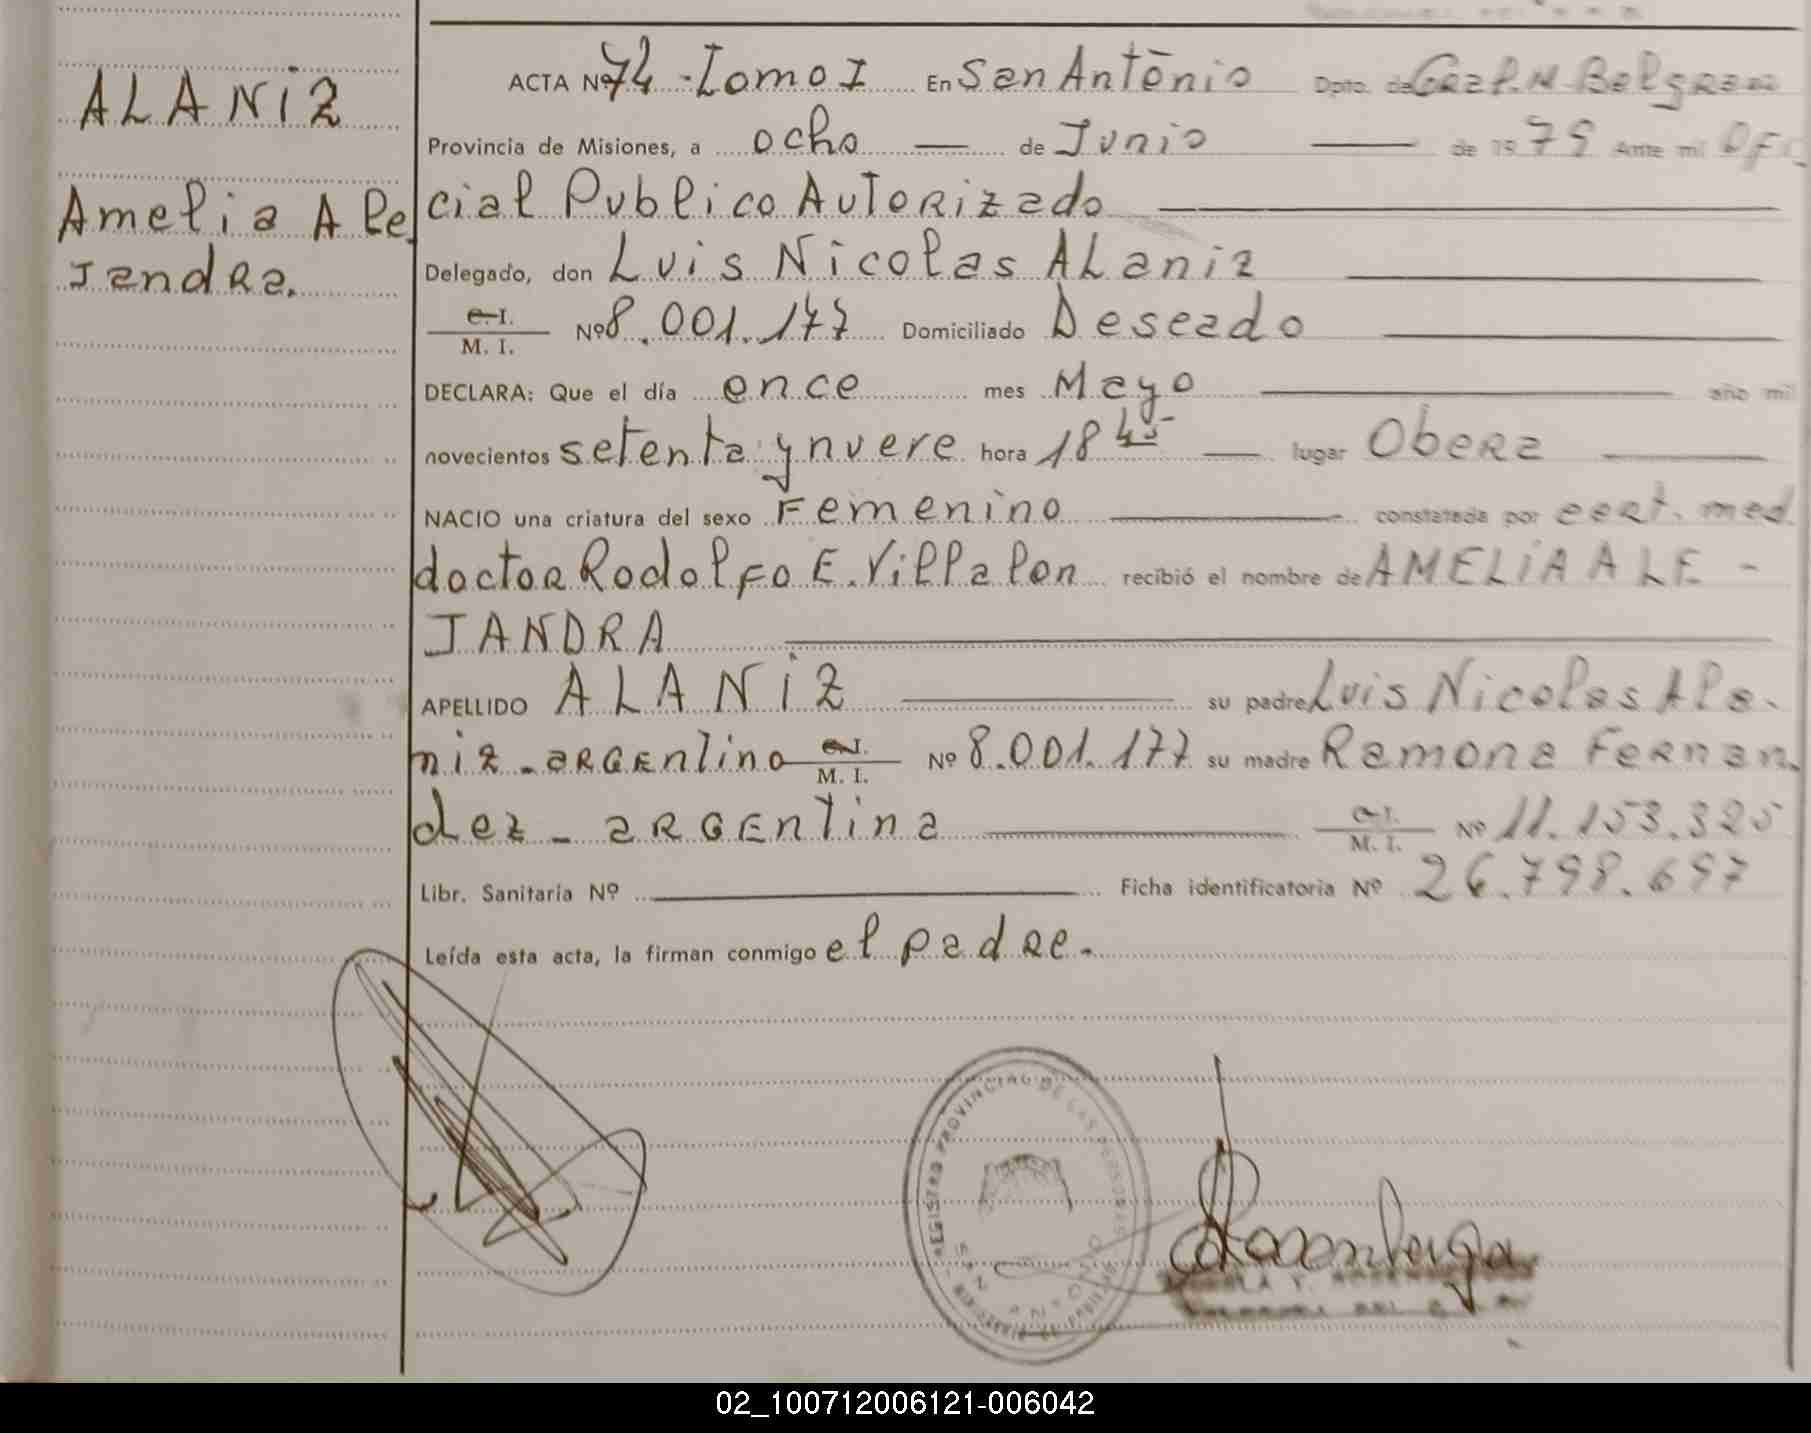 ALANIZ
Amelia Ale
Jandra.
ACTA Nº 74 - Tomo I En San Antonio Dpto. de Gral. M. Belgrano
Provincia de Misiones, a ocho — de Junio — de 1979 Ante mi Ofi
cial Publico Autorizado
Delegado, don Luis Nicolas Alaniz
C. I.
M. I. Nº 8.001.177 Domiciliado Deseado
DECLARA: Que el día once mes Mayo — año mil
novecientos setenta y nueve hora 18 45 — lugar Obera
NACIO una criatura del sexo Femenino — constatada por cert. med.
doctor Rodolfo E. Villalon recibió el nombre de AMELIA ALE -
JANDRA
APELLIDO ALANIZ — su padre Luis Nicolas Ala-
niz - argentino C. I. M. I. Nº 8.001.177 su madre Ramona Fernan-
dez - argentina — C. I. M. I. Nº 11.153.325
Libr. Sanitaria Nº — Ficha identificatoria Nº 26.798.697
Leída esta acta, la firman conmigo el padre.
REGISTRO PROVINCIAL DE LAS PERSONAS
SAN ANTONIO
02_100712006121-006042